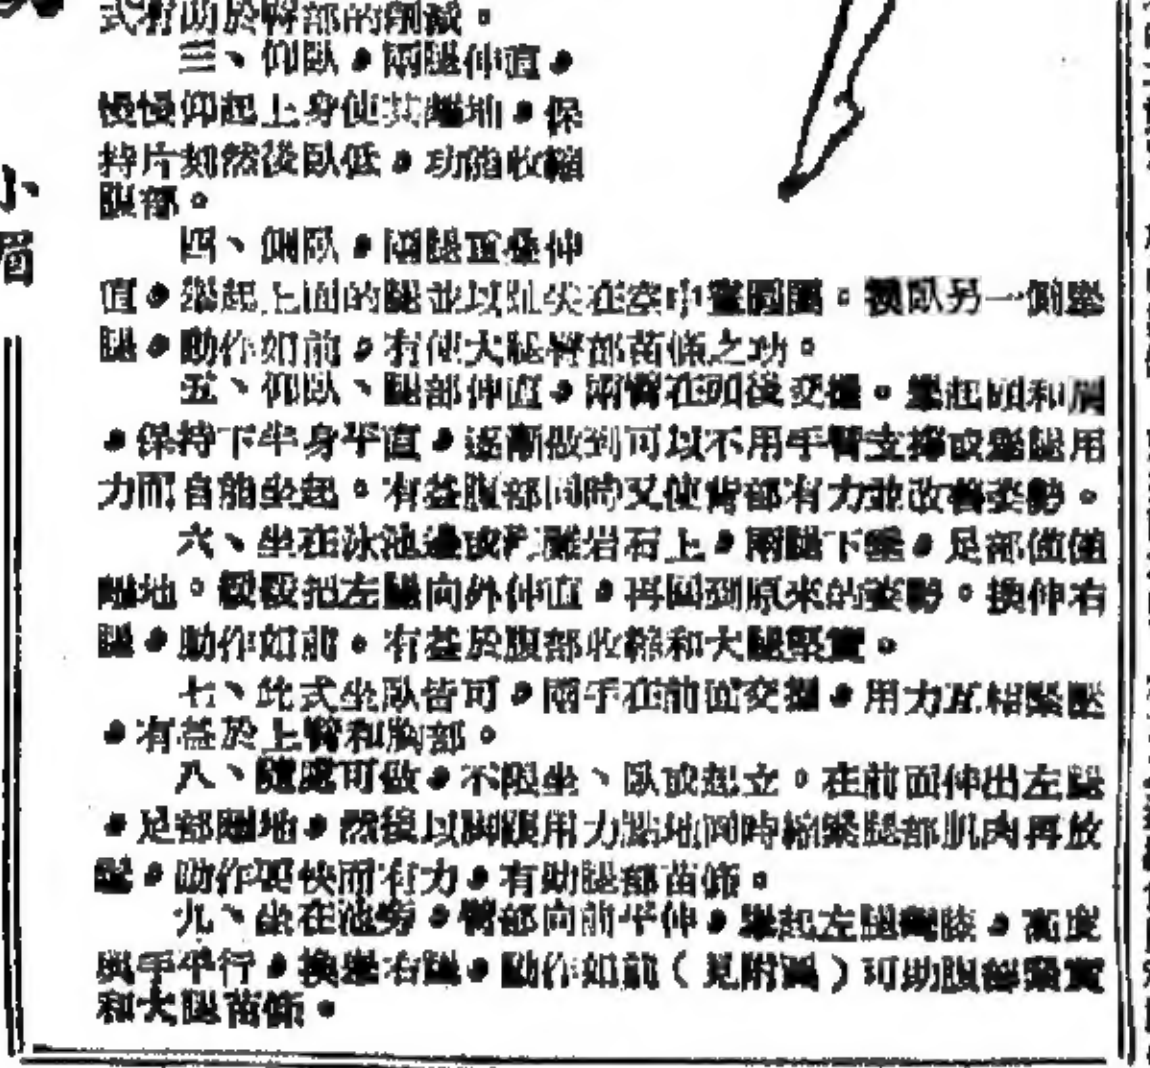 式有助於臀部的削減。
三、仰臥，兩腿伸直，
慢慢仰起上身使其離地，保
持片刻然後臥低，功能收縮
腹部。
四、側臥，兩腿重疊伸
直，舉起上面的腿並以趾尖在空中畫圓圈。換臥另一側舉
腿，動作如前，有使大腿臀部苗條之功。
五、仰臥、腿部伸直，兩臂在頭後交握。舉起頭和肩
，保持下半身平直，逐漸做到可以不用手臂支撐或舉腿用
力而自能坐起。有益腹部同時又使背部有力並改善姿勢。
六、坐在泳池邊或 岩石上，兩腿下垂，足部僅僅
離地。緩緩把左腿向外伸直，再回到原來的姿勢。換伸右
腿，動作如前。有益於腹部收縮和大腿堅實。
七、此式坐臥皆可，兩手在前面交握，用力互相緊壓
，有益於上臂和胸部。
八、隨處可做，不限坐、臥或起立。在前面伸出左腿
，足部離地，然後以脚跟用力點地同時縮緊腿部肌肉再放
鬆，動作要快而有力，有助腿部苗條。
九、坐在池旁，臂部向前平伸，舉起左腿彎膝，高度
與手平行，換舉右腿，動作如前（見附圖）可助腹部緊實
和大腿苗條。
小眉